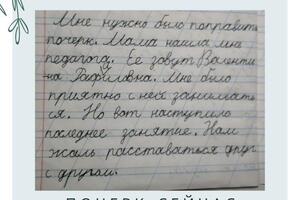 Мне нужно было поправить
почерк. Мама нашла мне
педагога. Её зовут Валенти
на Гафиловна. Мне было
приятно с ней заниматъ
ся. Но вот наступило
последнее занятие. Нам
жаль расставаться друг
с другом.
ПОЧЕРК СЕЙЧАС